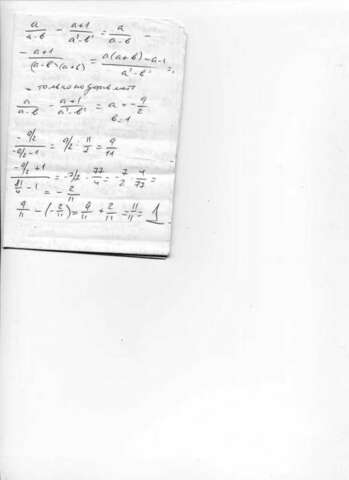 a/(a-b) - (a+1)/(a²-b²) = a/(a-b) -
- (a+1)/((a-b)(a+b)) = (a(a+b)-a-1)/(a²-b²) =
a/(a-b) - (a+1)/(a²-b²) = a = -9/2
b=1
(-9/2)/(-9/2-1) = 9/2 · 11/2 = 9/11
(-9/2+1)/(81/4-1) = -7/2 · 77/4 = -7/2 · 4/77 =
= -2/11
9/11 - (-2/11) = 9/11 + 2/11 = 11/11 = 1